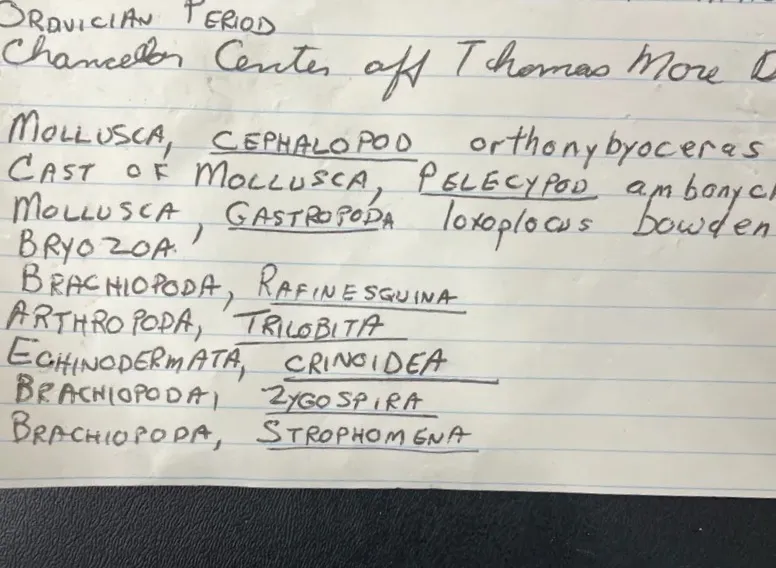 ORDVICIAN PERIOD
Chancellor Center off Thomas More D
MOLLUSCA, CEPHALOPOD orthonybyoceras
CAST OF MOLLUSCA, PELECYPOD ambonych
MOLLUSCA, GASTROPODA loxoplocus bowden
BRYOZOA.
BRACHIOPODA, RAFINESGUINA
ARTHROPODA, TRILOBITA
ECHINODERMATA, CRINOIDEA
BRACHIOPODA, ZYGOSPIRA
BRACHIOPODA, STROPHOMENA